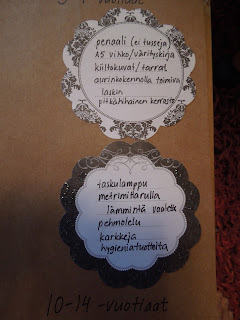 -vuotiaat
penaali (ei tusseja)
A5 vihko/värityskirja
kiiltokuvat/tarrat
aurinkokennolla toimiva
laskin
pitkähihainen kerrasto
taskulamppu
metrimitta rulla
lämmintä
pehmolelu
karkkeja
hygieniatuotteita
10-14 -vuotiaat